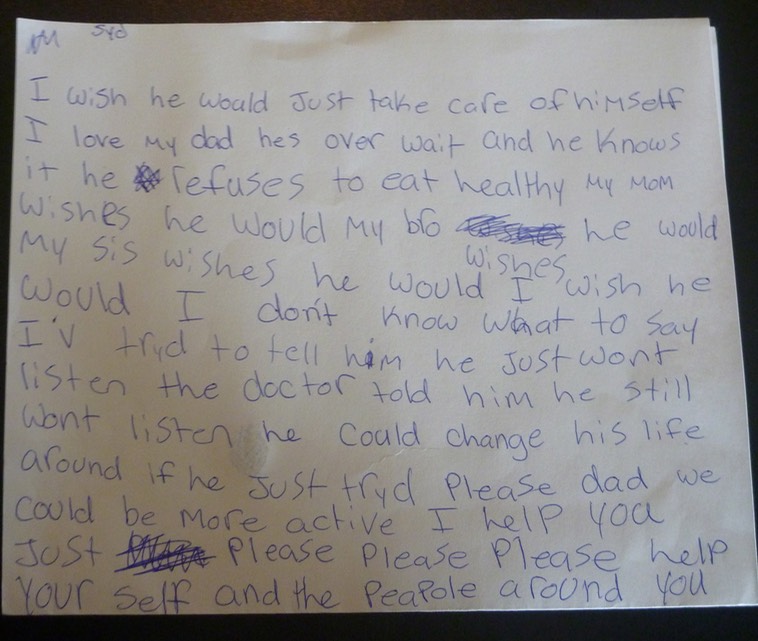 Syd
I wish he would Just take care of himself
I love my dad hes over wait and he knows
it he refuses to eat healthy my mom
wishes he would my bro wishes he would
my sis wishes he would I wish he
would I don't know what to say
I'v tryd to tell him he just wont
listen the doctor told him he still
wont listen he could change his life
around if he Just tryd Please dad we
could be more active I help you
Just Please Please Please help
your self and the peapole around you